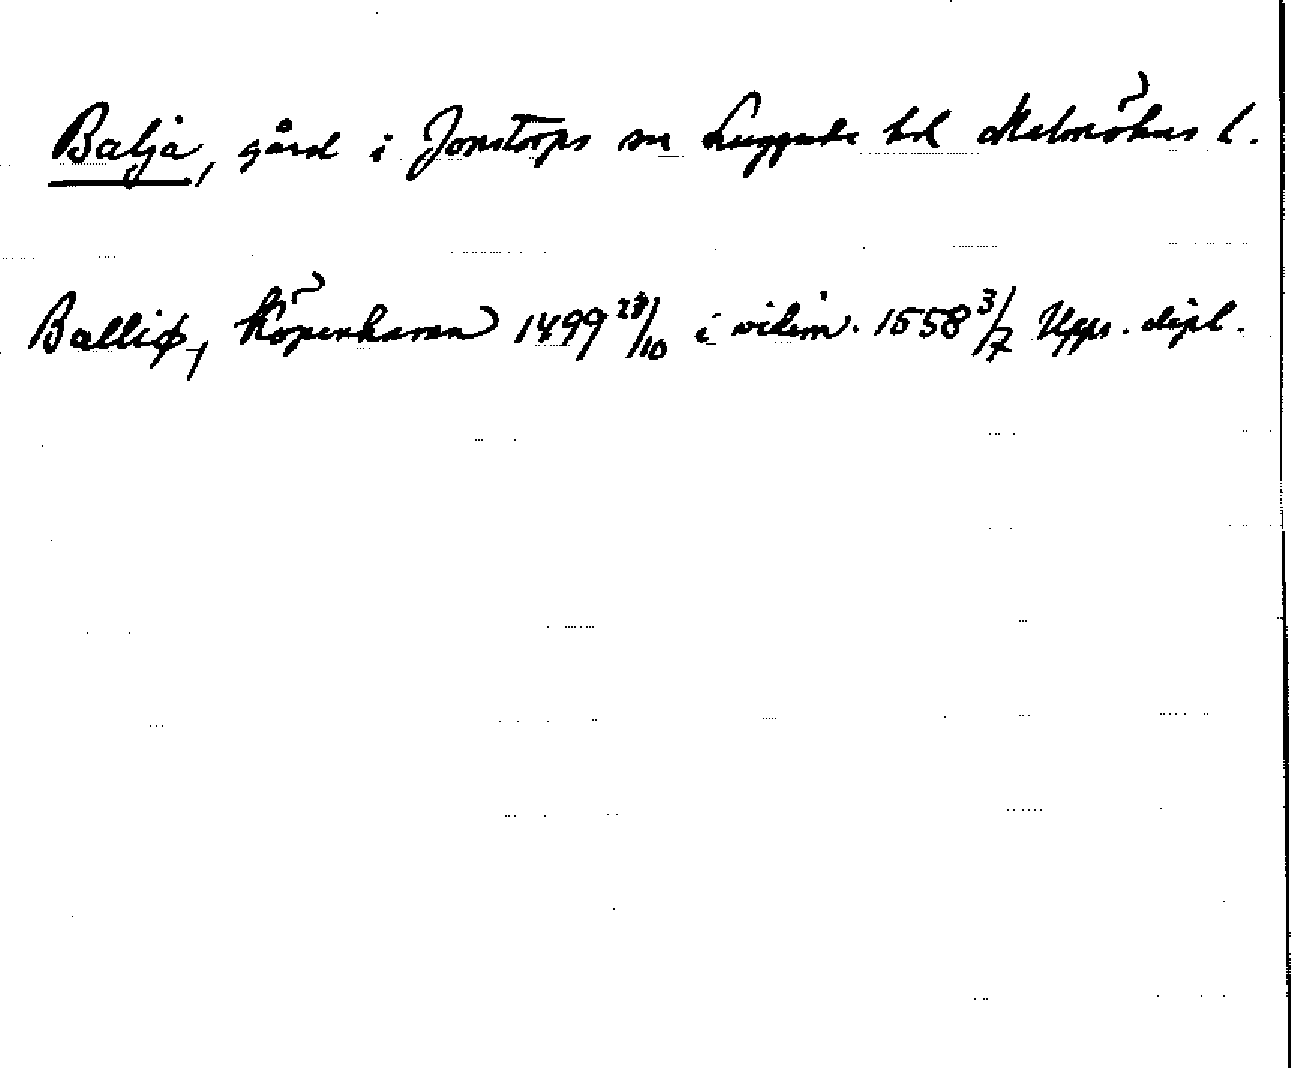 Balja, gård i Jonstorps sn Luggude hd Malmöhus l.
Balliø, Köpenhamn 1499 /10 i vidim. 1558 3/7 Upps. dipl.